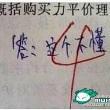 既括购买力平价理
答：这个不懂